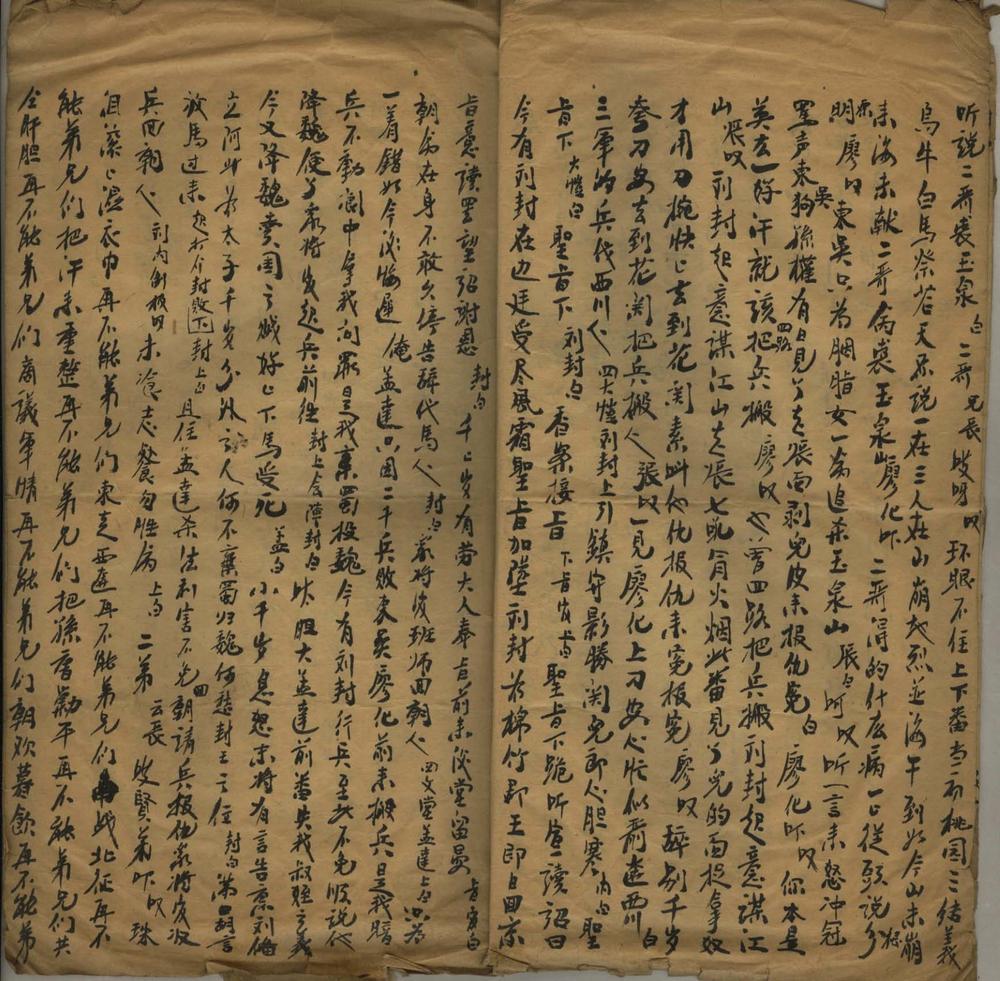 听说二哥丧玉泉 白 二哥 兄长 唗 环眼不住上下番当初桃园三结義
烏牛白馬祭苍天不说一在三人在山崩地烈並海干到如今山未崩
未海未献二哥病丧玉泉山廖化吓 二哥得的什么病一一从头说分
明 廖叹 东吴只为胭脂女一命追杀玉泉山 张白 呵 叹 听一言来怒冲冠
罵声东吴狗孫權有日見了去张面剥兒皮来报仇冤 白 廖化吓 叹 你本是
英雄好汗就该把兵搬 廖叹 也曾四路把兵搬刘封起意谋江
山 张叹 刘封起意谋江山去张七吼肯火烟此番見了兒的面捉拿奴
才用刀挽快之去到花関素叫他仇报仇来冤报冤 廖叹 辞别千岁
夸刀安去到花関把兵搬人 张叹 一見廖化上刀安心忙似箭逃西川 白
三軍的兵代西川人 四大愷刘封上引 鎮守影勝関兒郎心胆寒 内白 聖
旨下 大愷白 聖旨下 刘封白 香案接旨 下旨官白 聖旨下跪听宣读诏曰
今有刘封在边廷受尽風霜聖旨加陞刘封为棉竹郡王即日回京
旨意读罢望诏谢恩 封白 千岁有劳大人奉旨前来後堂留晏 旨官白
朝命在身不敢久停告辞代馬人 封白 众将後班师回朝人 四文堂孟達上白 只为
一着错如今後悔遲 俺 孟達只因二千兵败東吴廖化前来搬兵是我暗
兵不動阆中拿我问罪是我棄蜀投魏今有刘封行兵至此不免順说他
降魏便了众将发起兵前往 封上会陣封白 呔胆大孟達前番失我叔姪之義
今又降魏卖国之贼好之下馬受死 孟白 小千岁息怒末将有言告禀刘備
立阿斗为太子千岁分外之人何不棄蜀归魏何愁封王之任 封白 满口胡言
放馬过来 起打介封败下 封上白 且住孟達杀法利害不免回朝请兵报仇众将後收
兵回朝人 刘内倒板叹 未冷志餐旬胜病 上白 二弟 云長 唗贤弟吓 叹 珠
泪滚之湿衣巾再不能弟兄们東走西逃再不能弟兄们南战北征再不
能弟兄们把汗来重整再不能弟兄们把孫曹勦平再不能弟兄们共
仝肝胆再不能弟兄们商議軍情再不能弟兄们朝欢暮飲再不能弟